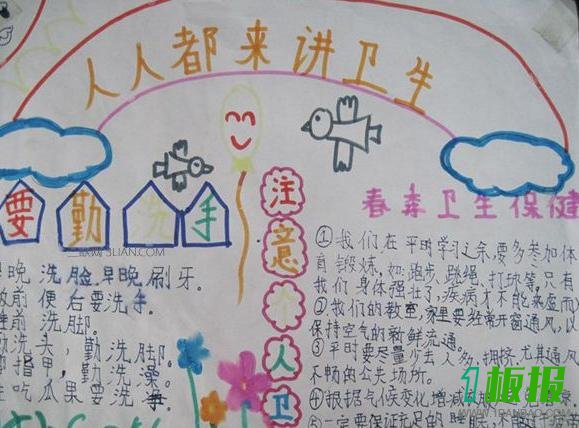 人人都来讲卫生
要勤洗手
晚洗脸,早晚刷牙。
前便后要洗手。
前洗脚。
洗头,勤洗脚。
指甲,勤洗澡。
吃瓜果要洗
注意个人卫
春季卫生保健
①我们在平时学习之余要多参加体
育锻炼,如:跑步、跳绳、打球等,只有
我们身体强壮了,疾病才不能乘虚而
②我们的教室,家里要经常开窗通风,以
保持空气的新鲜流通。
③平时要尽量少去人多,拥挤,尤其通风
不畅的公共场所。
④根据气候变化增减
⑤一定要保证充足的睡眠,不能
1板报
WWW.1BANBAO.COM
3LIAN.COM